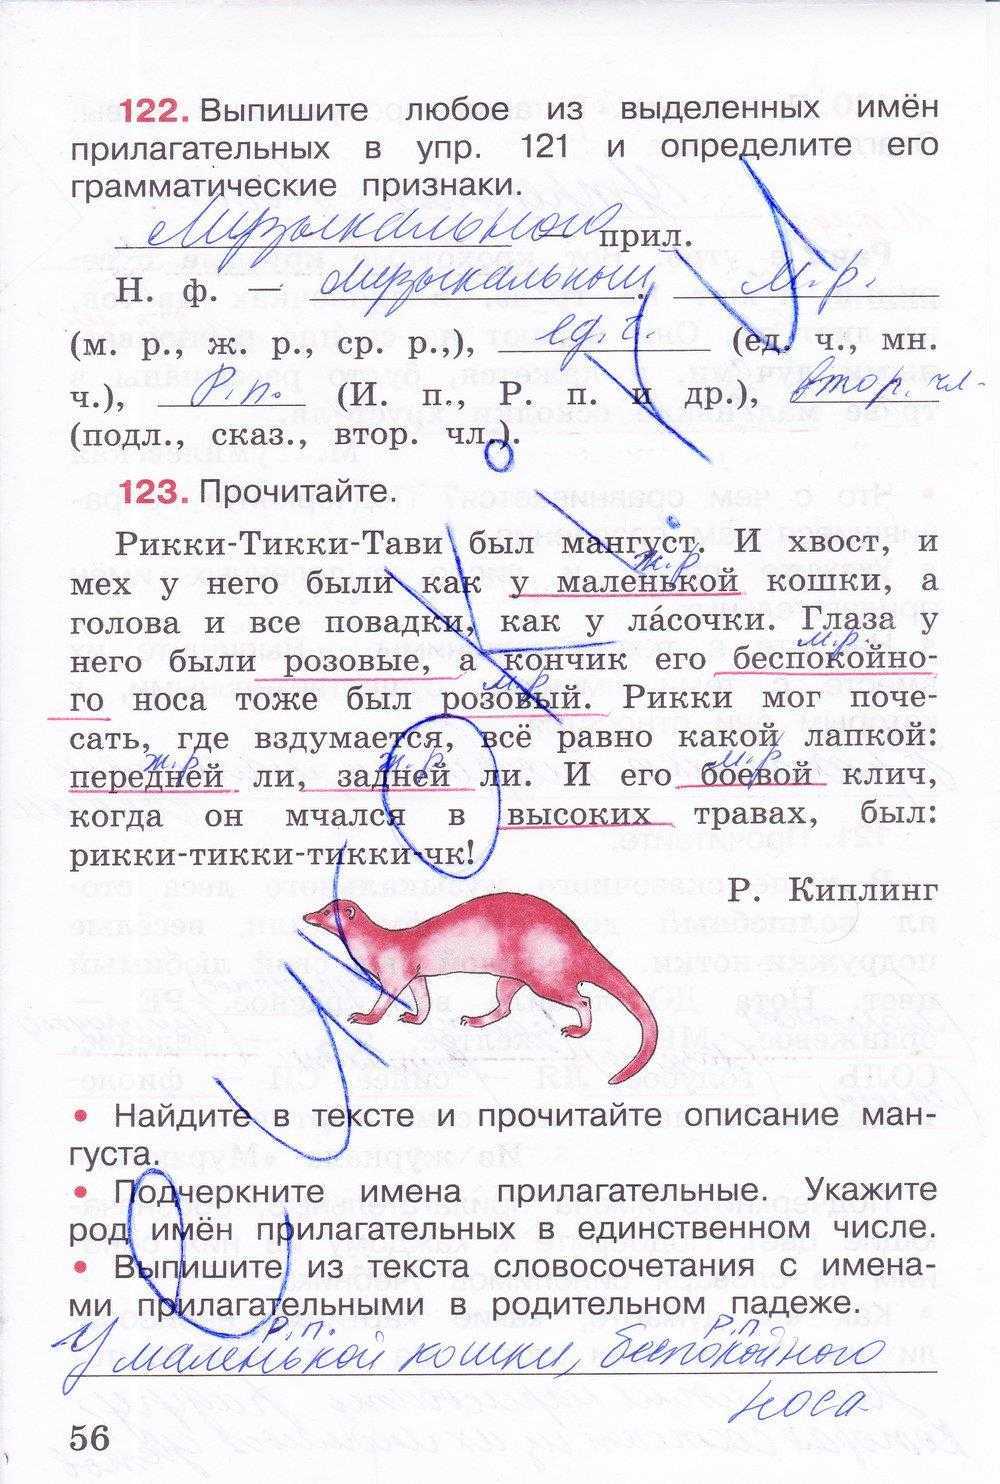 122. Выпишите любое из выделенных имён
прилагательных в упр. 121 и определите его
грамматические признаки.
Музыкального — прил.
Н. ф. — музыкальный. м.р.
(м. р., ж. р., ср. р.,), ед.ч. (ед. ч., мн.
ч.), Р.п. (И. п., Р. п. и др.), втор. чл.
(подл., сказ., втор. чл.).
123. Прочитайте.
Рикки-Тикки-Тави был мангуст. И хвост, и
ж.р
мех у него были как у маленькой кошки, а
голова и все повадки, как у ла́сочки. Глаза у
м.р.
него были розовые, а кончик его беспокойно-
м.р
го носа тоже был розовый. Рикки мог поче-
сать, где вздумается, всё равно какой лапкой:
ж.р ж.р м.р
передней ли, задней ли. И его боевой клич,
когда он мчался в высоких травах, был:
рикки-тикки-тикки-чк!
Р. Киплинг
• Найдите в тексте и прочитайте описание ман-
густа.
• Подчеркните имена прилагательные. Укажите
род имён прилагательных в единственном числе.
• Выпишите из текста словосочетания с имена-
ми прилагательными в родительном падеже.
Р.п. Р.п
У маленькой кошки, беспокойного
носа
56